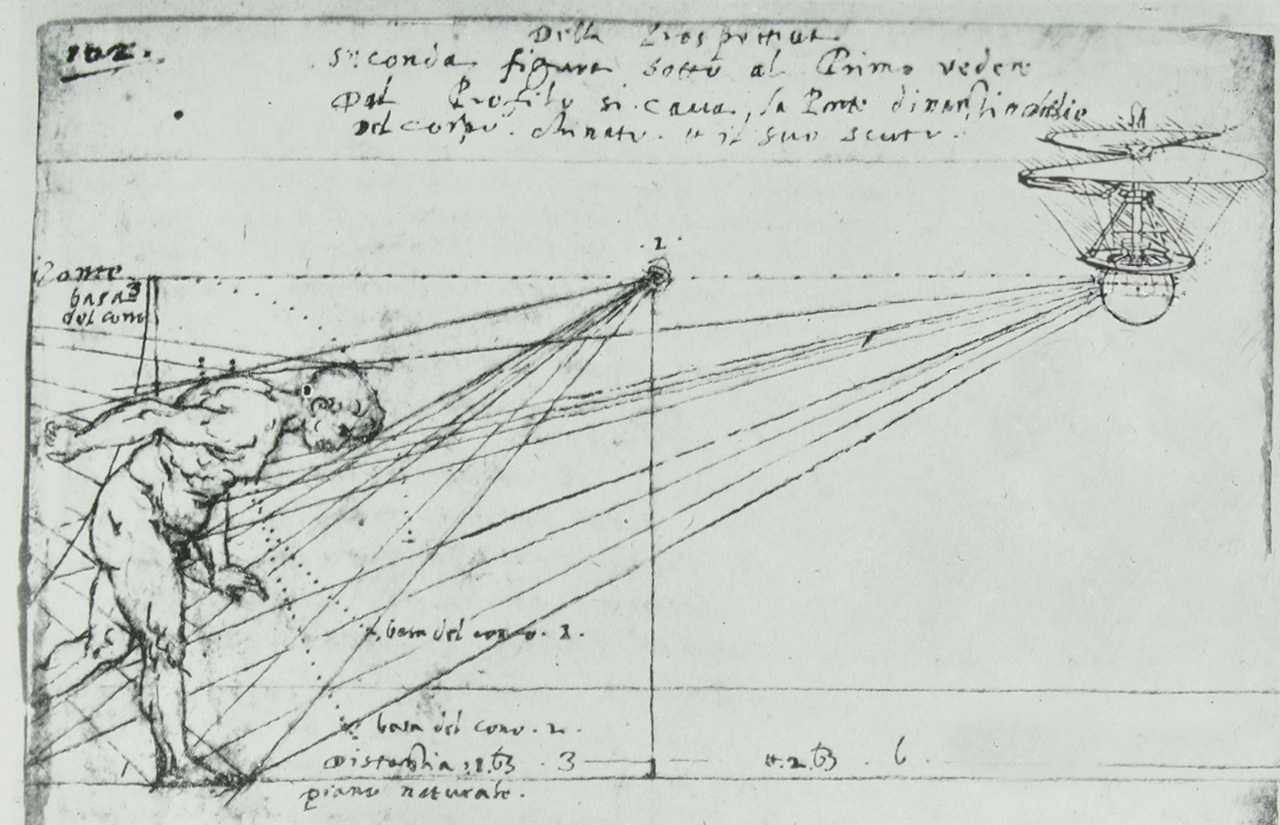 102.
Della Prospettiua
seconda figura sotto al Primo vedere
Dal Profilo si caua, la Parte dinanzi
Del corpo. chinato. et il suo scuto.
1
Ponte
basa 3
del cono
basa del cono. 1.
basa del cono. 2.
Distantia 3 6
piano naturale.